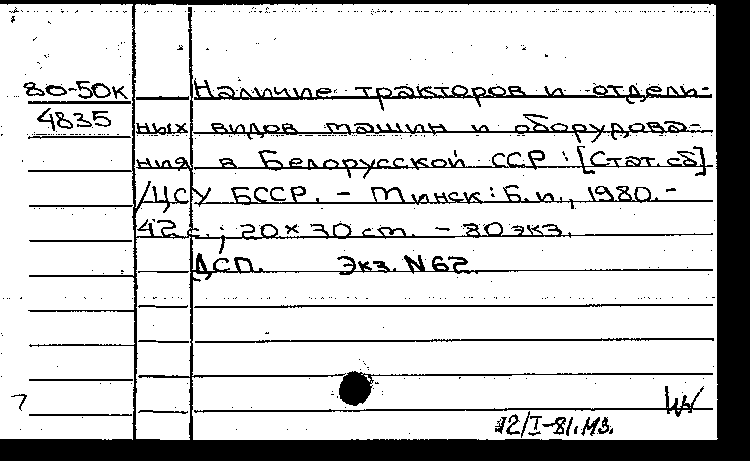 80-50к
4835
Наличие тракторов и отдель-
ных видов машин и оборудова-
ния в Белорусской ССР: [Стат. сб]
/ЦСУ БССР. - Минск: Б.и., 1980. -
42 с.; 20×30 см. - 80 экз.
ДСП. Экз. N 62.
7
12/I-81. МЗ.